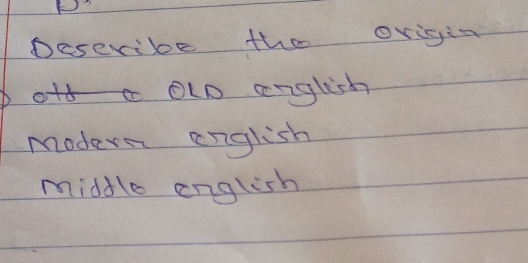 Describe the origin
OLD english
modern english
middle english